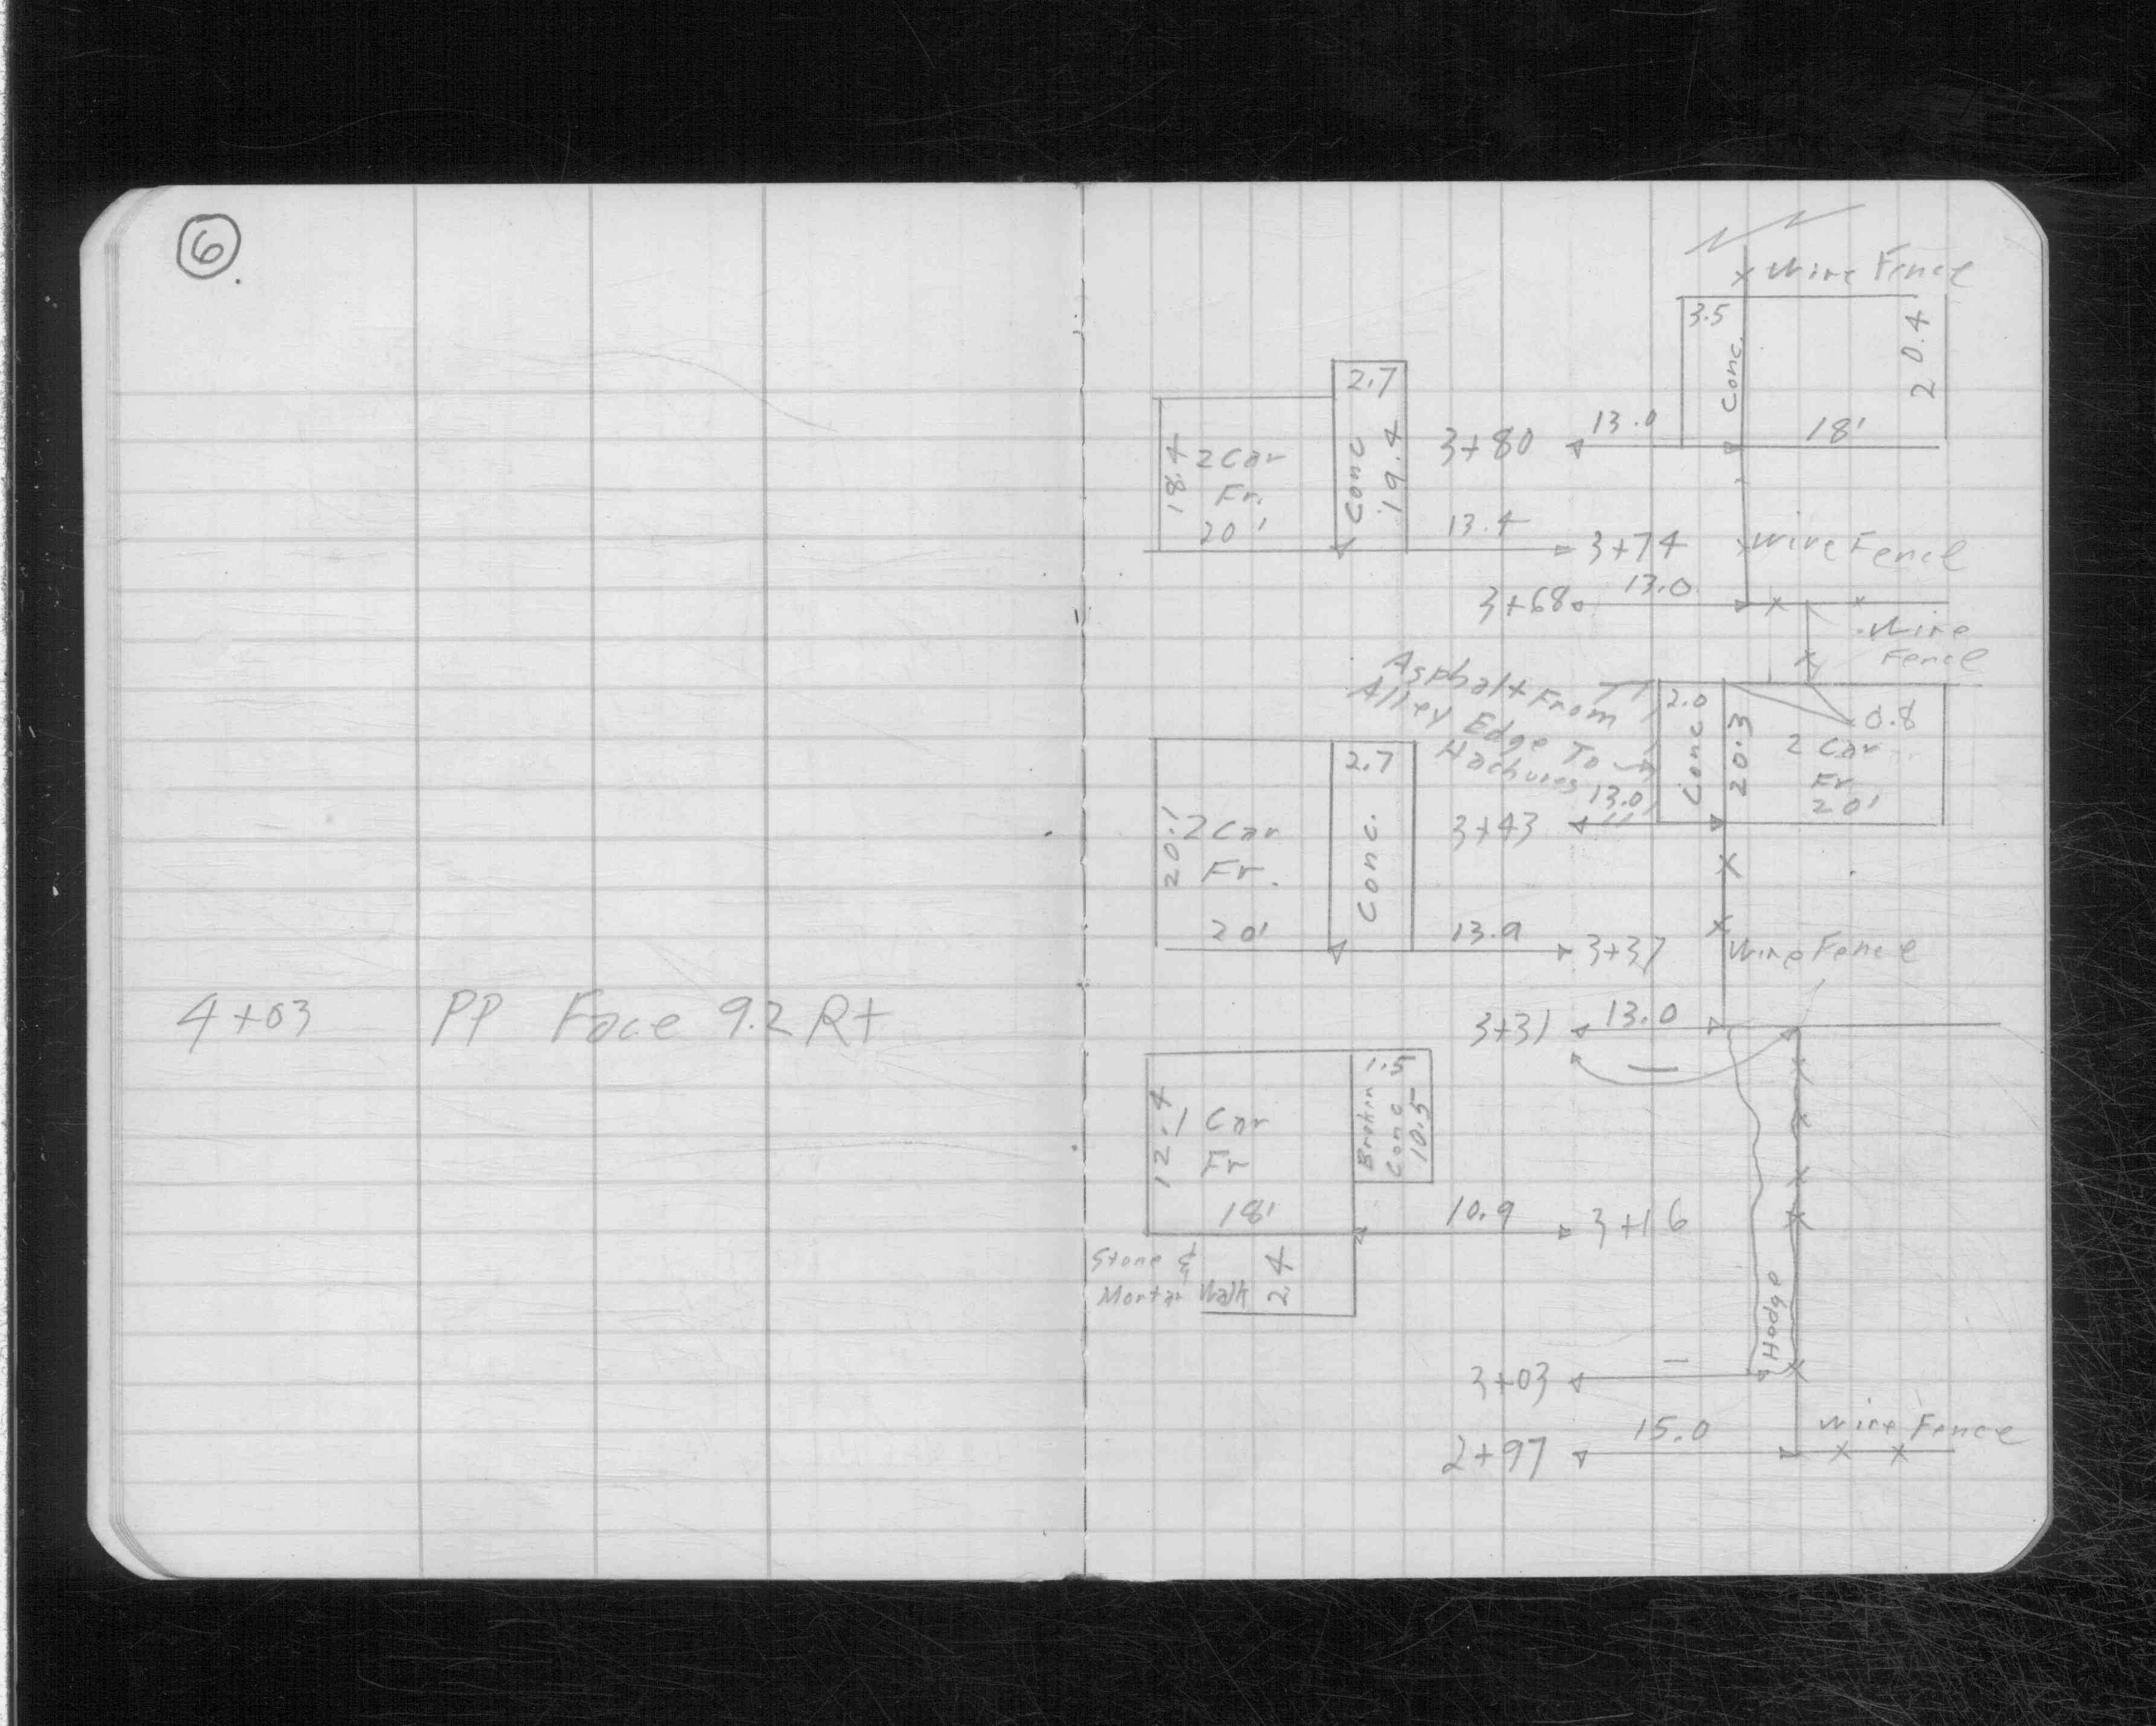 6
4+03 PP Face 9.2 Rt
Wire Fence
3.5
Conc.
20.4
18'
2.7
Conc
19.4
18.4
2 Car
Fr.
20'
3+80
13.0
13.4
3+74
Wire Fence
3+68
13.0
Wire
Fence
Asphalt From
Alley Edge To
Hachures
2.0
Conc
20.3
0.8
2 Car
Fr
20'
2.7
Conc.
20.1
2 Car
Fr.
20'
13.0
3+43
13.9
3+37
Wire Fence
3+31
13.0
1.5
Broken
Conc
10.5
12.4
1 Car
Fr
18'
10.9
3+16
Stone &
Mortar Walk
24
Hedge
3+03
15.0
2+97
Wire Fence